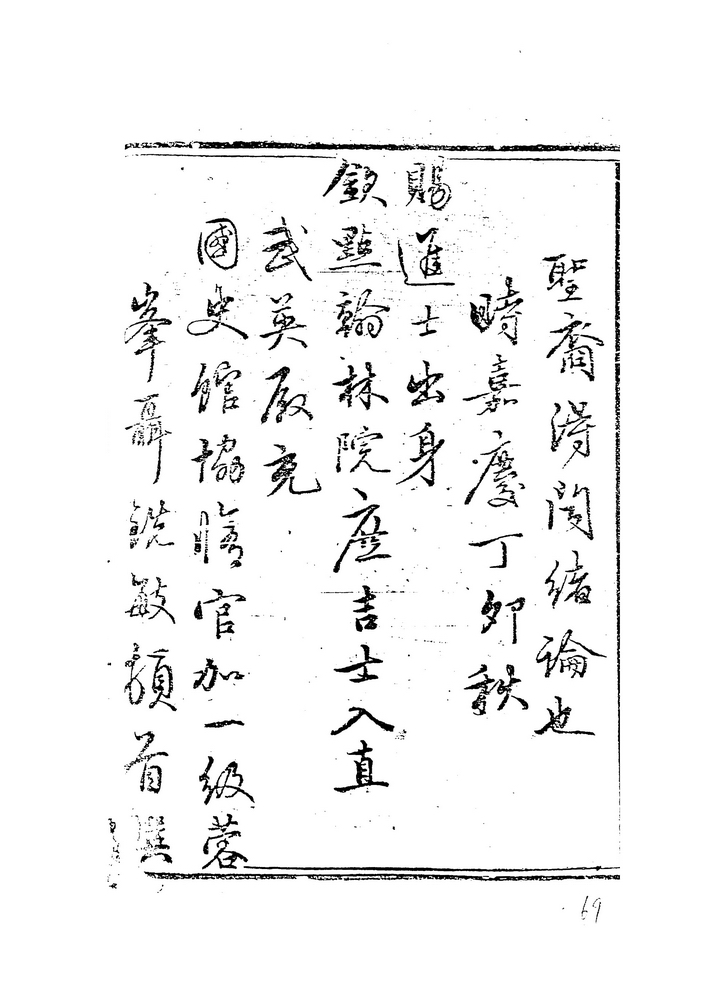 聖裔得聞緒論也
時嘉慶丁卯秋
賜進士出身
欽點翰林院庶吉士入直
武英殿充
國史館協脩官加一級蓉
峯聶銑敏頓首撰
69